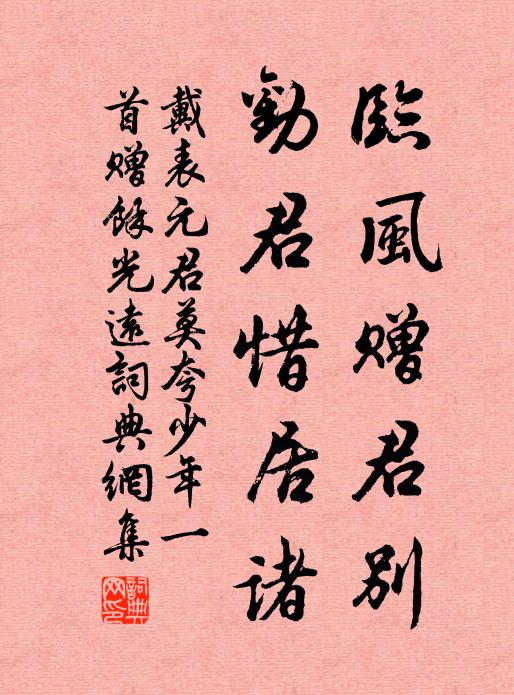 臨風贈君別
勸君惜居諸
戴表元君莫夸少年一
首贈餘光遠詞典網集
詞典網印